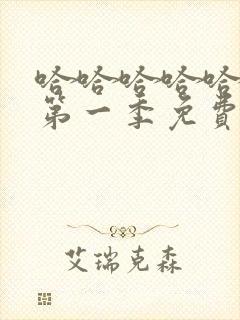 哈哈哈哈哈
第一季免費
艾瑞克森